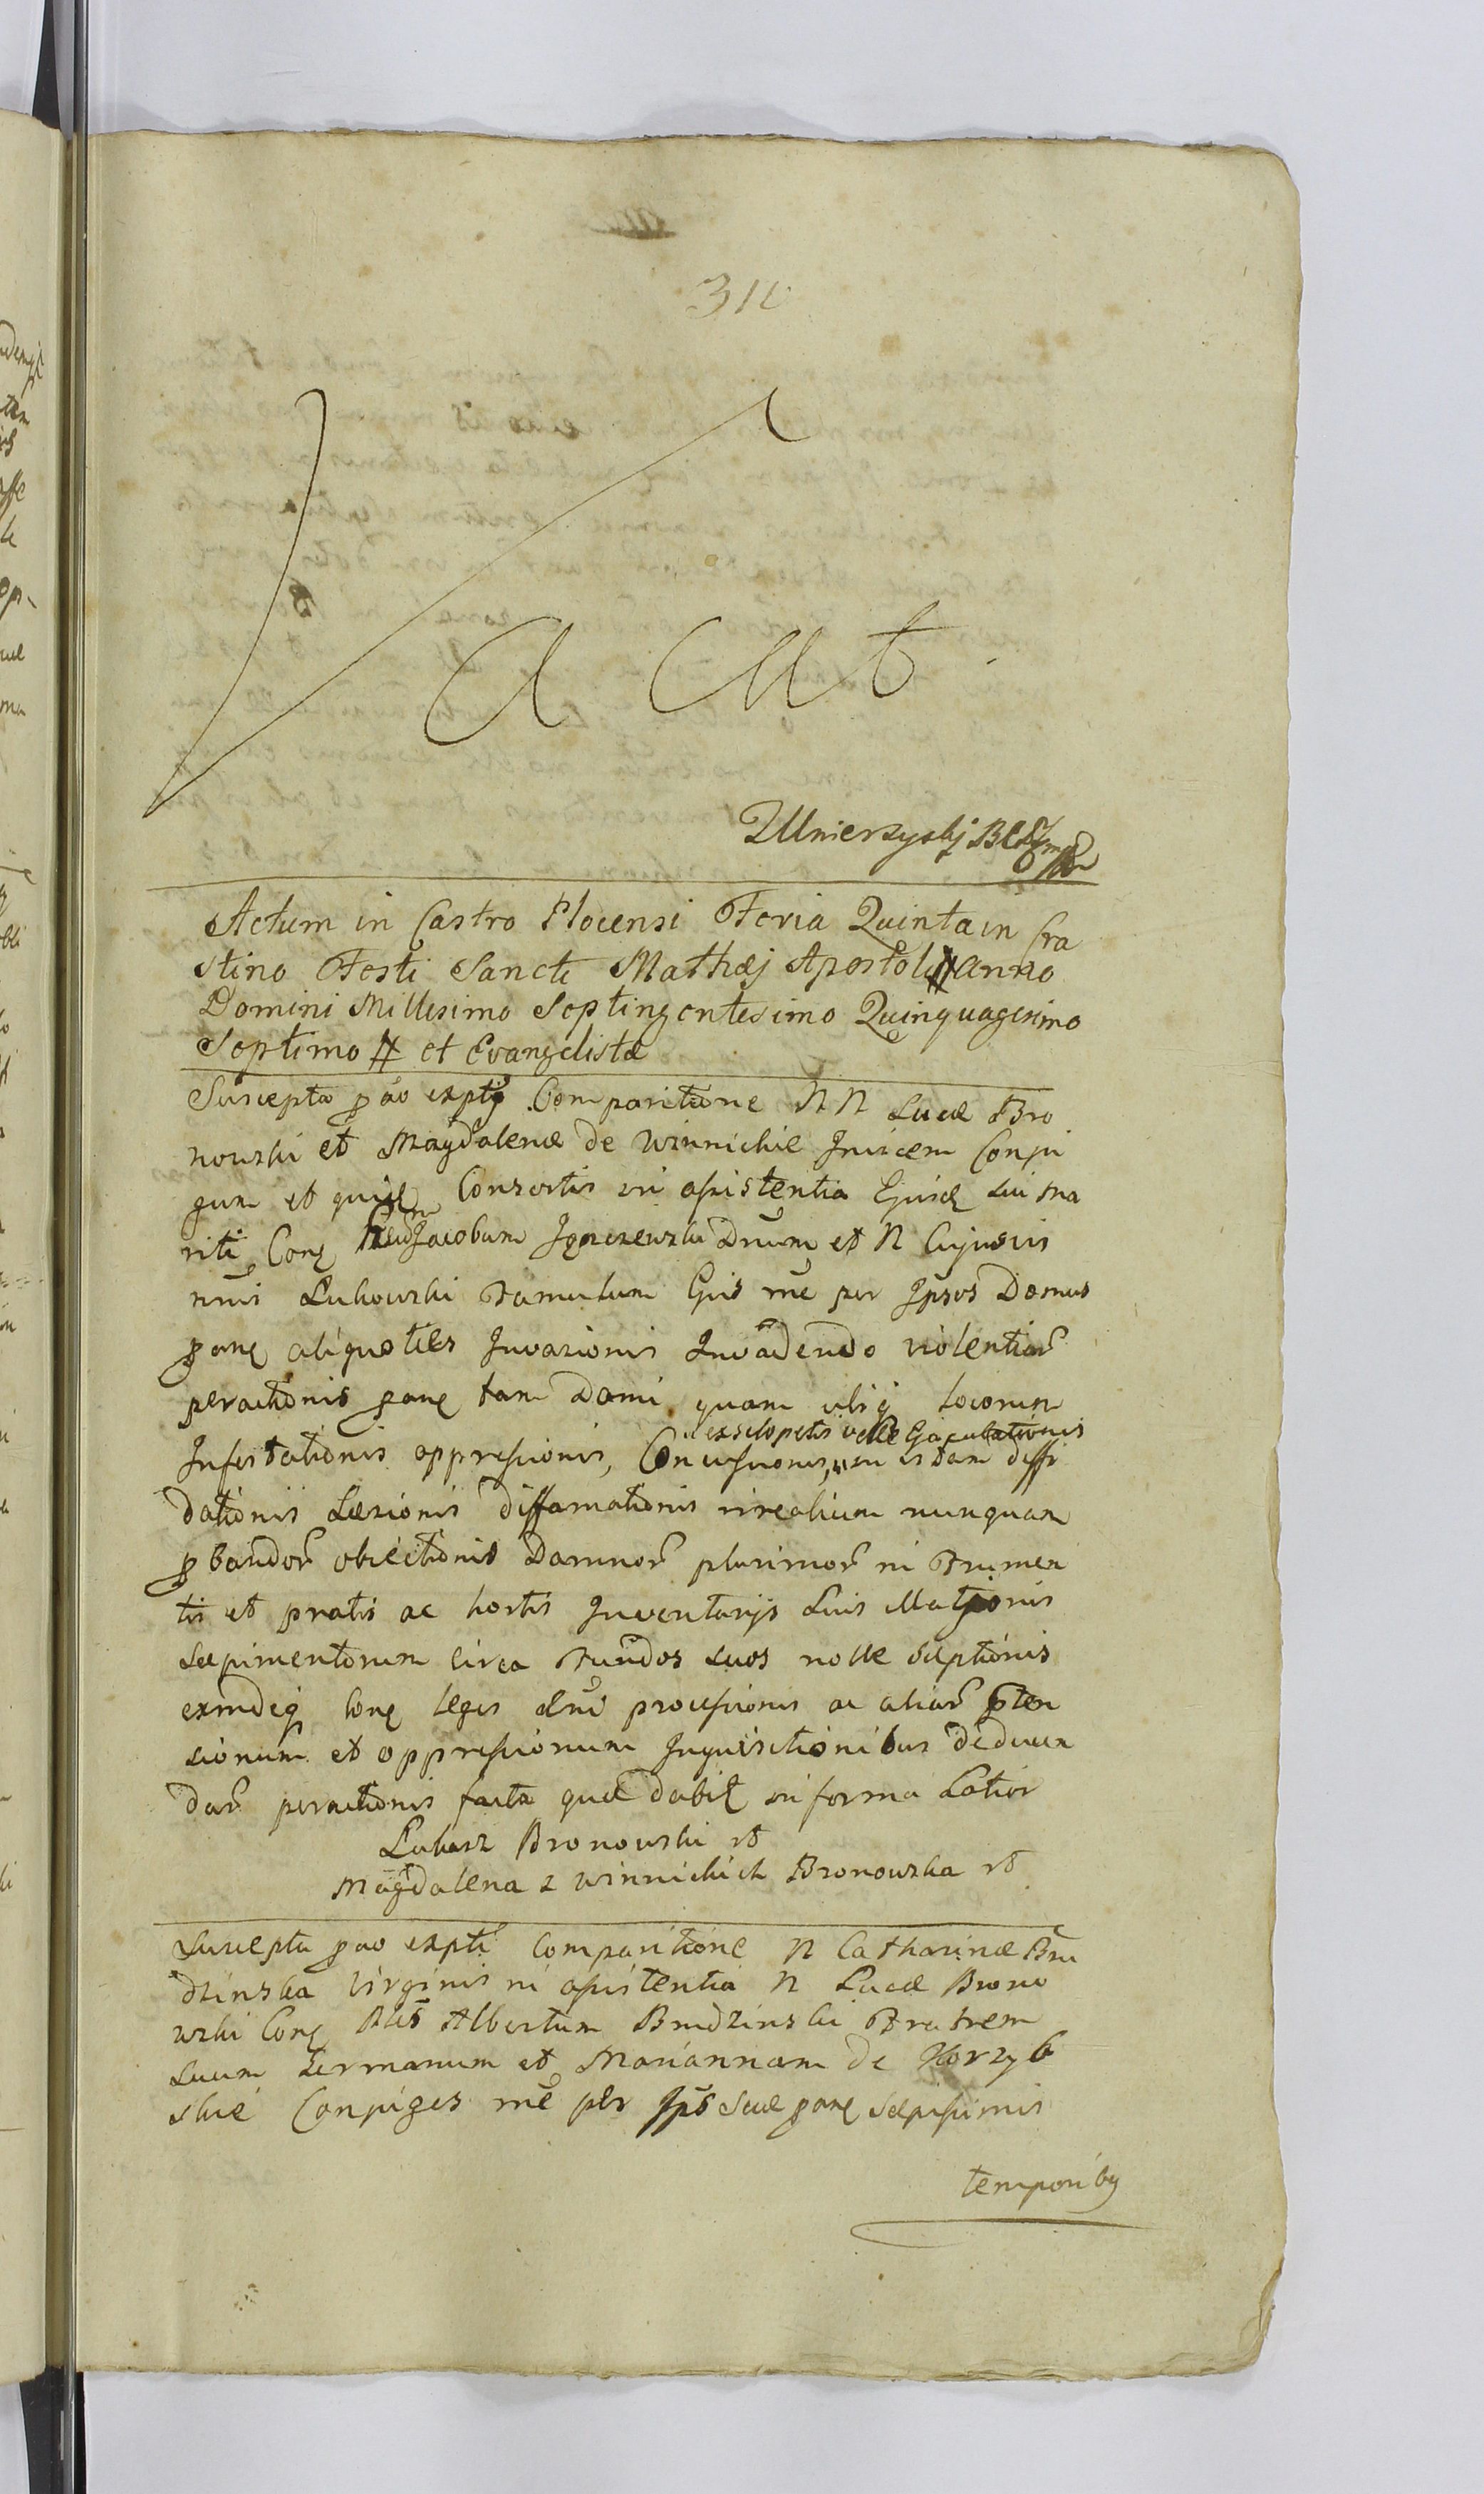 311
Vacat
Umierzyskj
Actum in Castro Plocensi Feria Quinta in Cra
stino Festi Sancti Mathæj Apostoli # anno
Domini Millesimo Septingentesimo Quinquagesimo
Septimo # et Evangelistæ
Suscepta pao expti Comparitione NN Lucæ Bro
nowski et Magdalenæ de Winnickie Invicem Conju
gum et quidem Consortis in assistentia Ejusd sui ma
riti Conq Jacobum Drum et N Cujusvis
nnis Lukowski Famulum Ejus me per Ipsos Domus
panq aliquoties Invasionis Invadendo violentiar
peractionis panq tam Domi quam ubiq locorum
exsclopetis velle Ejaculationis
Infestationis oppressionis, Concussionis, diffi
dationis Læsionis diffamationis nunquam
pbandor obiectionis Damnor plurimor in Frumen
tis et pratis ac hortis Inventarijs Suis
sæpimentorum circa Fundos suos nolle sæptionis
exindeq conq legis processionis ac aliar pten
sionum et oppressionum Inquisitionibus deducen
dar peractionis facta quæ dabit in forma Latior
Lukasz Bronowski
Magdalena z Winnickich Bronowska
Suscepta pao expti Comparitione N Catharinæ Bru
dzinska Virginis in assistentia N Lucæ Brono
wski Conq Albertum Brudzinski Fratrem
suum Germanum et Mariannam de Korzyb
skie Conjuges me per Ips panq sæpissimis
temporibq